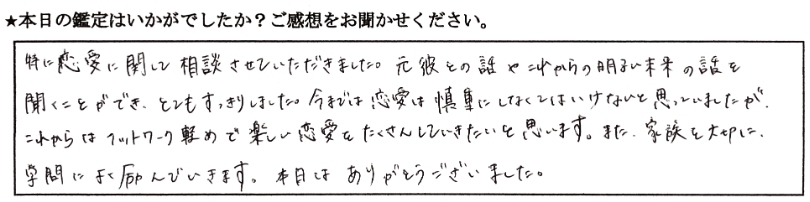 ★本日の鑑定はいかがでしたか？ご感想をお聞かせください。
特に恋愛に関して相談させていただきました。元彼との話やこれからの明るい未来の話を
聞くことができ、とてもすっきりしました。今までは恋愛は慎重にしなくてはいけないと思っていましたが、
これからはフットワーク軽めで楽しい恋愛をたくさんしていきたいと思います。また、家族を大切に、
学問によく励んでいきます。本日はありがとうございました。